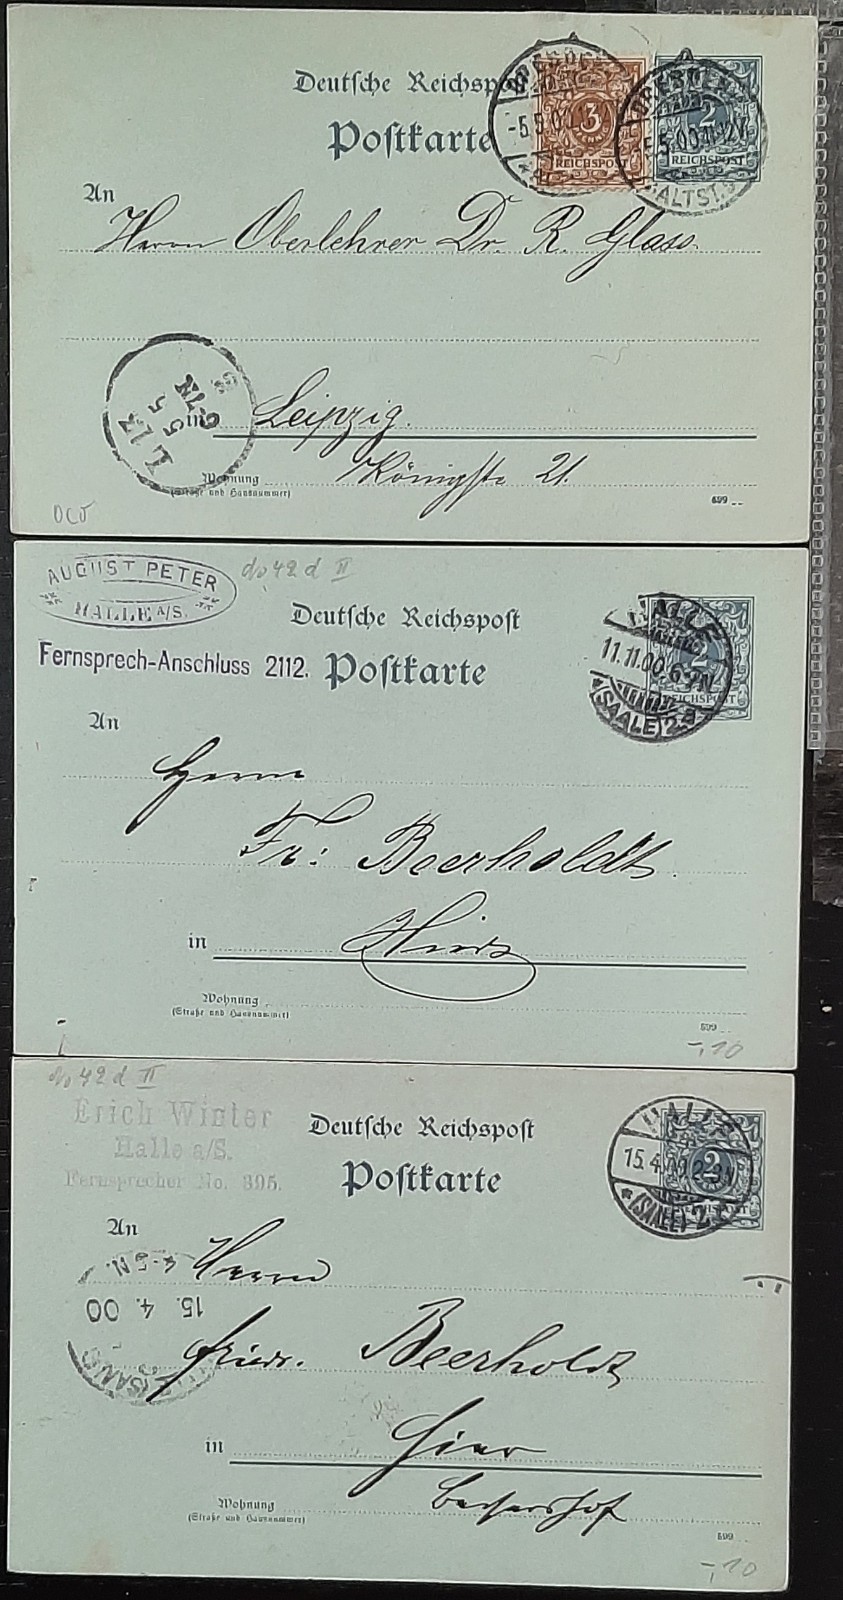 Deutsche Reichspost
Postkarte
3
REICHSPOST
2
REICHSPOST
DRESDEN
-5.5.00.11-12V.
ALTST.
An
Herrn Oberlehrer Dr. R. Glass.
L 13
5 5
in Leipzig.
Wohnung
(Straße und Hausnummer)
Königstr. 21.
899
AUGUST PETER
HALLE A/S.
do 42 d II
Fernsprech-Anschluss 2112.
Deutsche Reichspost
Postkarte
HALLE
11.11.00.6-7N.
(SAALE) 2.
2
REICHSPOST
An
Herrn
Fr: Beerholdt.
in Hier
Wohnung
(Straße und Hausnummer)
899
-,10
do 42 d II
Erich Winter
Halle a/S.
Fernsprecher No. 895.
Deutsche Reichspost
Postkarte
HALLE
15.4.00.2-3N.
(SAALE) 2
2
REICHSPOST
An
Herrn
4-5N.
15. 4. 00
Friedr. Beerholdt
in Hier
Wohnung
(Straße und Hausnummer)
Bechershof
899
-,10